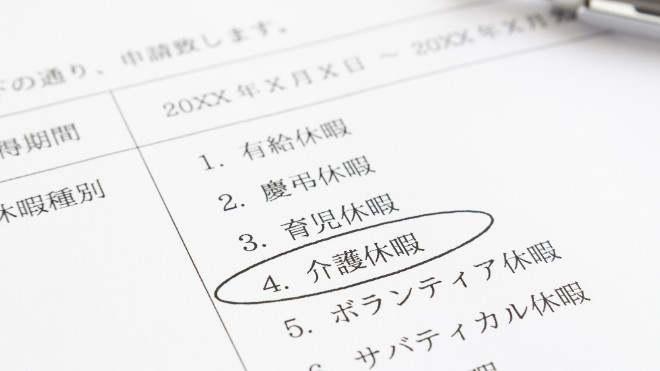 下の通り、申請致します。
得期間
20XX 年 X 月 X 日 ～ 20XX 年 X 月
休暇種別
1. 有給休暇
2. 慶弔休暇
3. 育児休暇
4. 介護休暇
5. ボランティア休暇
サバティカル休暇